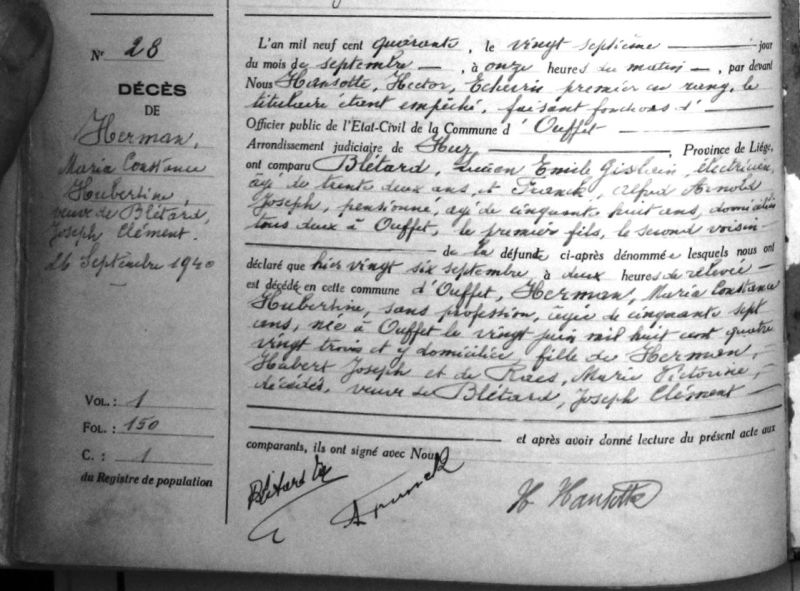 Nº 28
DÉCÈS
DE
Herman,
Maria Constance
Hubertine,
veuve de Blétard,
Joseph Clément.
26 Septembre 1940
VOL. : 1
FOL. : 150
C. : 1
du Registre de population
L'an mil neuf cent quarante, le vingt septième jour
du mois de septembre, à onze heures du matin, par devant
Nous Hansotte, Hector, Echevin premier en rang, le
titulaire étant empêché, faisant fonctions d'
Officier public de l'Etat-Civil de la Commune d'Ouffet
Arrondissement judiciaire de Huy, Province de Liége,
ont comparu Blétard, Lucien Emile Gislain, électricien,
âgé de trente deux ans, et Franck, Alfred Arnold
Joseph, pensionné, âgé de cinquante huit ans, domiciliés
tous deux à Ouffet, le premier fils, le second voisin
de la défunte ci-après dénommée lesquels nous ont
déclaré que hier vingt six septembre à deux heures de relevée
est décédée en cette commune d'Ouffet, Herman, Maria Constance
Hubertine, sans profession, âgée de cinquante sept
ans, née à Ouffet le vingt juin mil huit cent quatre
vingt trois et y domiciliée, fille de Herman,
Hubert Joseph et de Raes, Marie Victorine,
décédés, veuve de Blétard, Joseph Clément
et après avoir donné lecture du présent acte aux
comparants, ils ont signé avec Nous
Blétard
Franck
H Hansotte